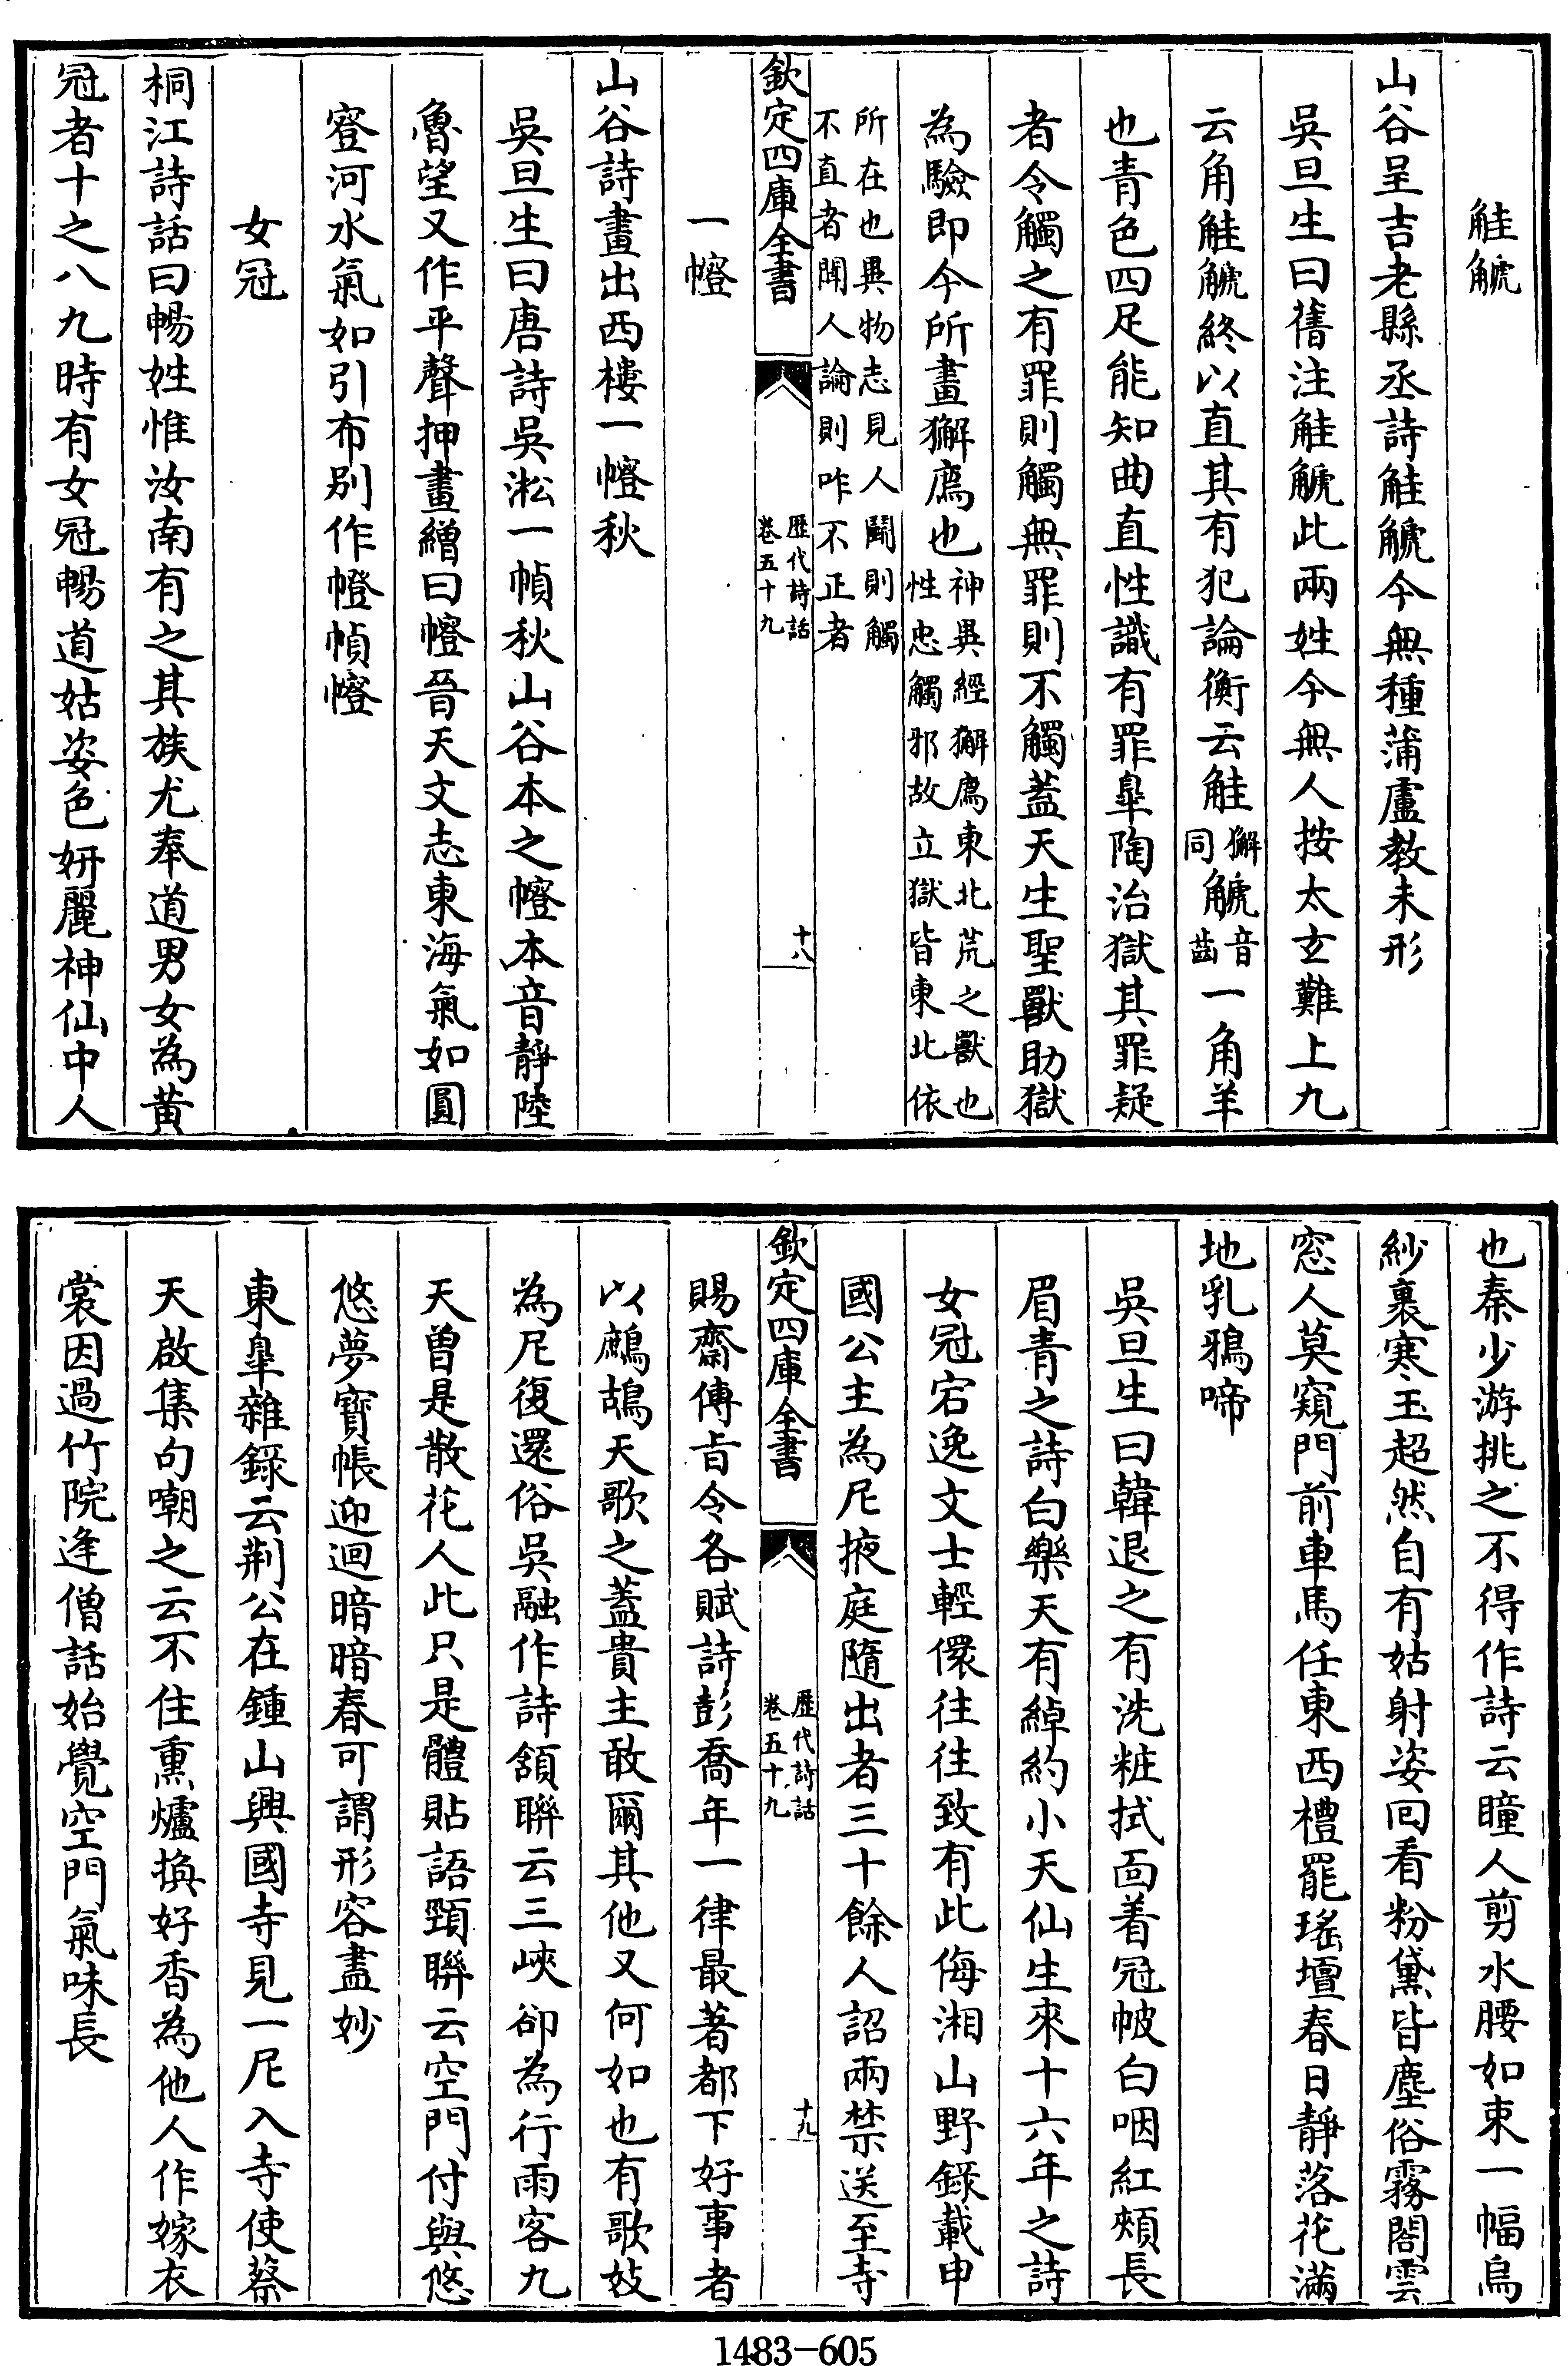 觟𧣾
山谷呈吉老縣丞詩觟𧣾今無種蒲盧教未形
吳旦生曰舊注觟𧣾此兩姓今無人按太玄難上九
云角觟𧣾終以直其有犯論衡云觟獬同𧣾音齒一角羊
也青色四足能知曲直性識有罪臯陶治獄其罪疑
者令觸之有罪則觸無罪則不觸蓋天生聖獸助獄
為驗即今所畫獬廌也神異經獬廌東北荒之獸也性忠觸邪故立獄皆東北依
所在也異物志見人鬭則觸不直者聞人論則咋不正者
欽定四庫全書 歷代詩話卷五十九 十八
一㡧
山谷詩畫出西樓一㡧秋
吳旦生曰唐詩吳淞一幀秋山谷本之㡧本音靜陸
魯望又作平聲押畫繒曰㡧晉天文志東海氣如圓
簦河水氣如引布别作㡧幀㡧
女冠
桐江詩話曰暢姓惟汝南有之其族尤奉道男女為黄
冠者十之八九時有女冠暢道姑姿色妍麗神仙中人
也秦少游挑之不得作詩云瞳人剪水腰如束一幅烏
紗裹寒玉超然自有姑射姿回看粉黛皆塵俗霧閤雲
窓人莫窺門前車馬任東西禮罷瑤壇春日靜落花滿
地乳鴉啼
吳旦生曰韓退之有洗粧拭面着冠帔白咽紅頰長
眉青之詩白樂天有綽約小天仙生來十六年之詩
女冠宕逸文士輕儇往往致有此侮湘山野錄載申
國公主為尼掖庭隨出者三十餘人詔兩禁送至寺
欽定四庫全書 歷代詩話卷五十九 十九
賜齋傳旨令各賦詩彭喬年一律最著都下好事者
以鷓鴣天歌之蓋貴主敢爾其他又何如也有歌妓
為尼復還俗吳融作詩頷聯云三峽卻為行雨客九
天曾是散花人此只是體貼語頸聯云空門付與悠
悠夢寶帳迎迴暗暗春可謂形容盡妙
東臯雜錄云荆公在鍾山興國寺見一尼入寺使蔡
天啟集句嘲之云不住熏爐換好香為他人作嫁衣
裳因過竹院逢僧話始覺空門氣味長
1483-605